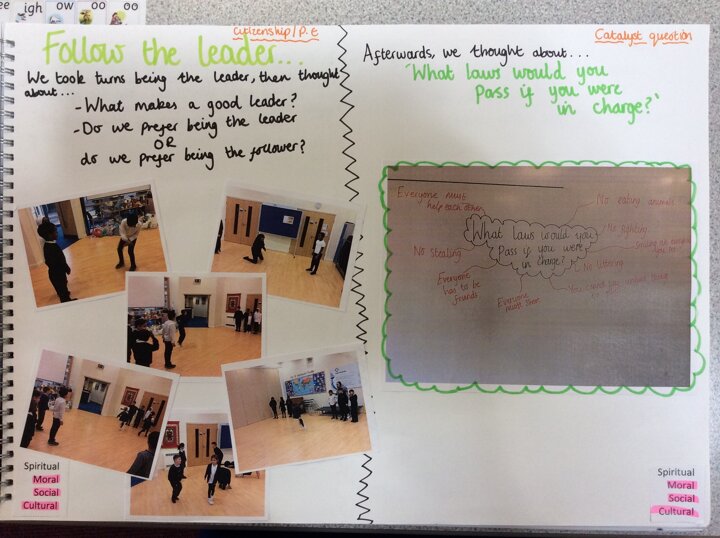 ee igh ow oo oo
Citizenship/P.E
Follow the leader...
We took turns being the leader, then thought
about...
- What makes a good leader?
- Do we prefer being the leader
OR
do we prefer being the follower?
Spiritual
Moral
Social
Cultural
Catalyst question
Afterwards, we thought about...
'What laws would you
pass if you were
in charge?'
Everyone must
help each other
No eating animals
No fighting
What laws would you
pass if you were
in charge?
No stealing
No littering
Everyone
has to be
friends
Everyone
must share
Spiritual
Moral
Social
Cultural